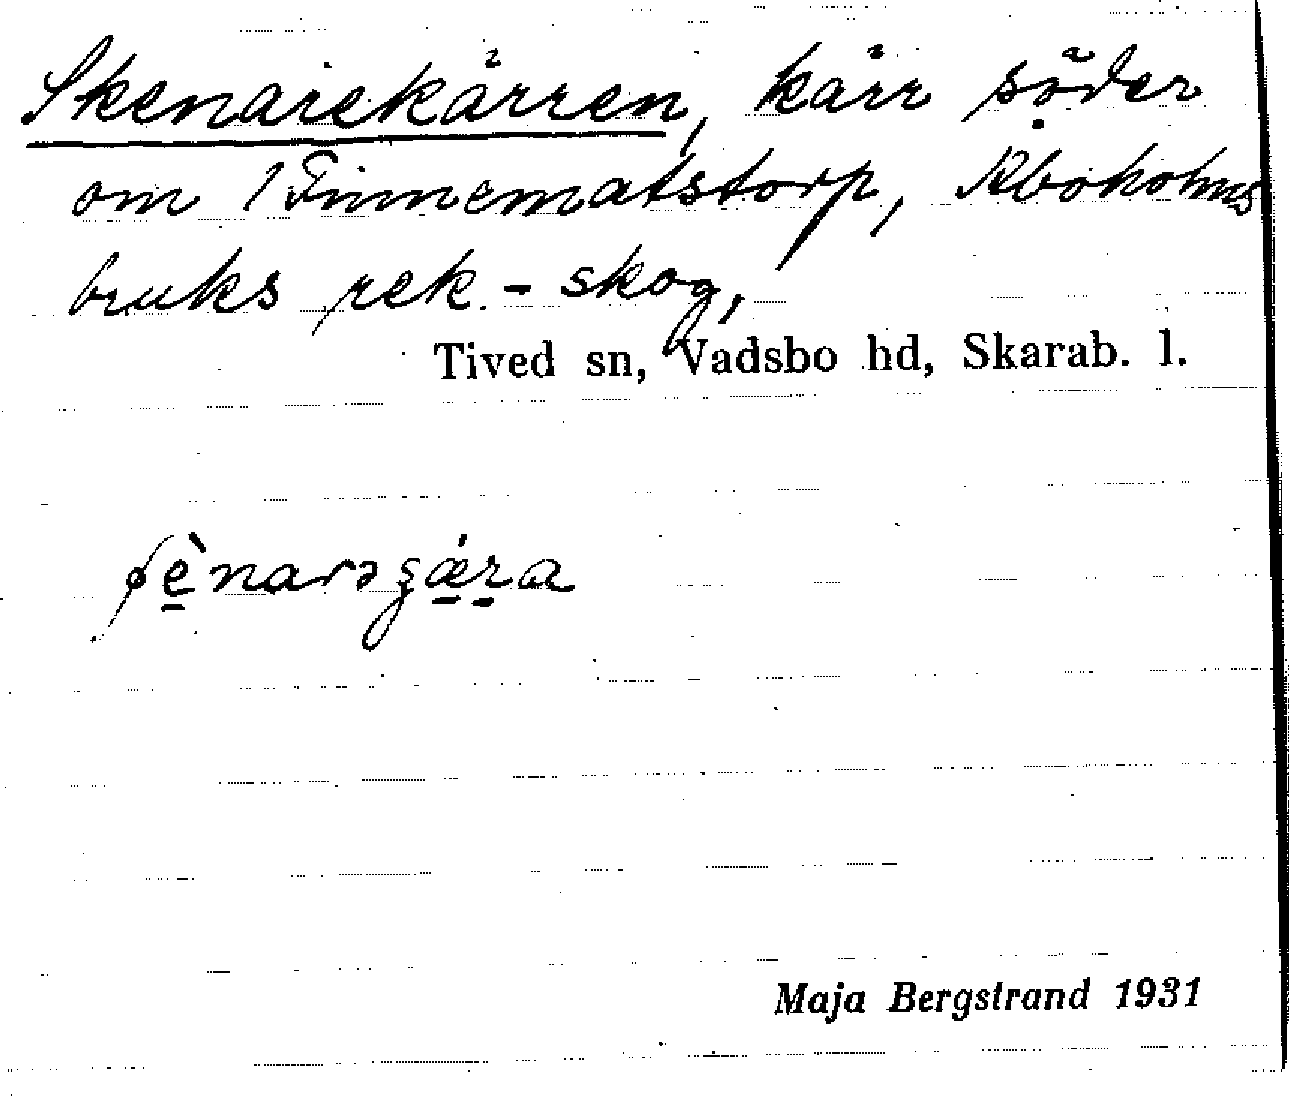 Skenarekärren, kärr söder
om 1 Finnematstorp, Rboholms
bruks rek.-skog,
Tived sn, Vadsbo hd, Skarab. l.
Maja Bergstrand 1931